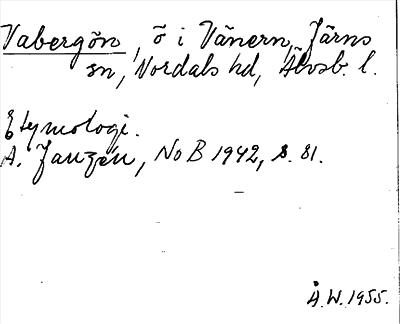 Vabergön, ö i Vänern, Järns
sn, Nordals hd, Älvsb. l.
Etymologi.
A. Janzén, NoB 1942, s. 81.
Å.W. 1955.